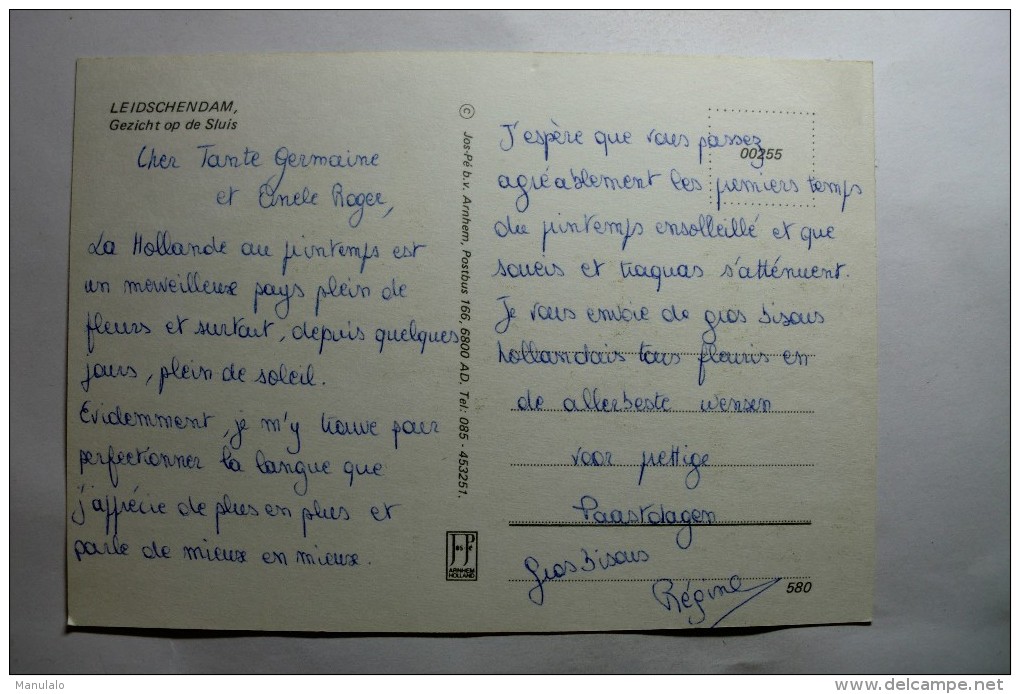 LEIDSCHENDAM,
Gezicht op de Sluis
Cher Tante Germaine
et Oncle Roger,
La Hollande au printemps est
un merveilleux pays plein de
fleurs et surtout, depuis quelques
jours, plein de soleil.
Evidemment, je m'y trouve pour
perfectionner la langue que
j'apprécie de plus en plus et
parle de mieux en mieux.
© Jos-Pé b.v. Arnhem, Postbus 166, 6800 AD. Tel: 085 - 453251.
Jos Pé
ARNHEM
HOLLAND
00255
J'espère que vous passez
agréablement les premiers temps
du printemps ensolleillé et que
soucis et traquas s'atténuent.
Je vous envoie de gros bisous
hollandais tous fleuris en
de allerbeste wensen
voor prettige
Paastdagen
Gros bisous
Régine
580
Manulalo
delcampe.net